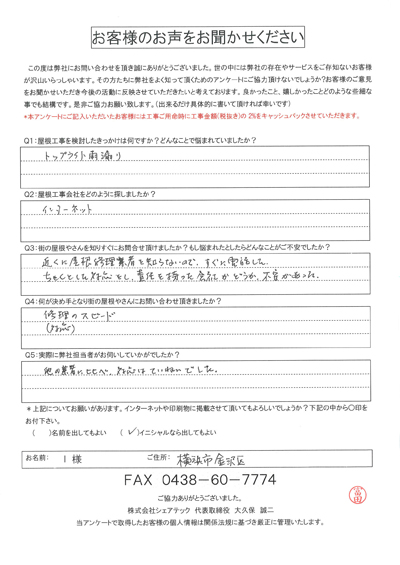 お客様のお声をお聞かせください
この度は弊社にお問い合わせを頂き誠にありがとうございました。世の中には弊社の存在やサービスをご存知ないお客様
が沢山いらっしゃいます。その方たちに弊社をよく知って頂くためのアンケートにご協力頂けないでしょうか?お客様のご意見
をお聞かせいただき今後の活動に反映させていただきたいと考えております。良かったこと、嬉しかったことどのような些細な
事でも結構です。是非ご協力お願い致します。(出来るだけ具体的に書いて頂ければ幸いです)
*本アンケートにご記入いただいたお客様には工事ご用命時に工事金額(税抜き)の 2%をキャッシュバックさせていただきます。
Q1:屋根工事を検討したきっかけは何ですか?どんなことで悩まれていましたか?
トップライト雨漏り
Q2:屋根工事会社をどのように探しましたか?
インターネット
Q3:街の屋根やさんを知りすぐにお問合せ頂けましたか?もし悩まれたとしたらどんなことがご不安でしたか?
近くに屋根修理業者を知らないので、すぐに電話した。
ちゃんとした対応をし、責任を持った会社かどうか、不安があった。
Q4:何が決め手となり街の屋根やさんにお問い合わせ頂きましたか?
修理のスピード
(対応)
Q5:実際に弊社担当者がお伺いしていかがでしたか?
他の業者に比べ、対応はていねいでした。
*上記についてお願いがあります。インターネットや印刷物に掲載させて頂いてもよろしいでしょうか?下記の中から〇印を
お付下さい。
( )名前を出してもよい (✓)イニシャルなら出してもよい
お名前: I 様 ご住所: 横浜市金沢区
FAX 0438-60-7774
ご協力ありがとうございました。
株式会社シェアテック 代表取締役 大久保 誠二
当アンケートで取得したお客様の個人情報は関係法規に基づき厳正に管理いたします。